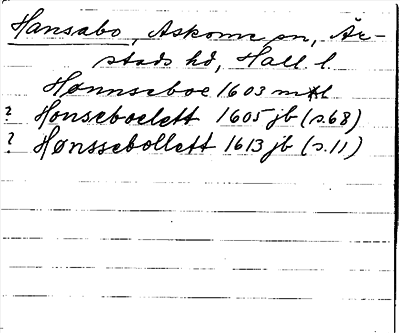 Hansabo, Askome sn, År-
stads hd, Hall. l.
Hønnseboe 1603 mtl
? Honseboelett 1605 jb (s.68)
? Hønssebollett 1613 jb (s.11)